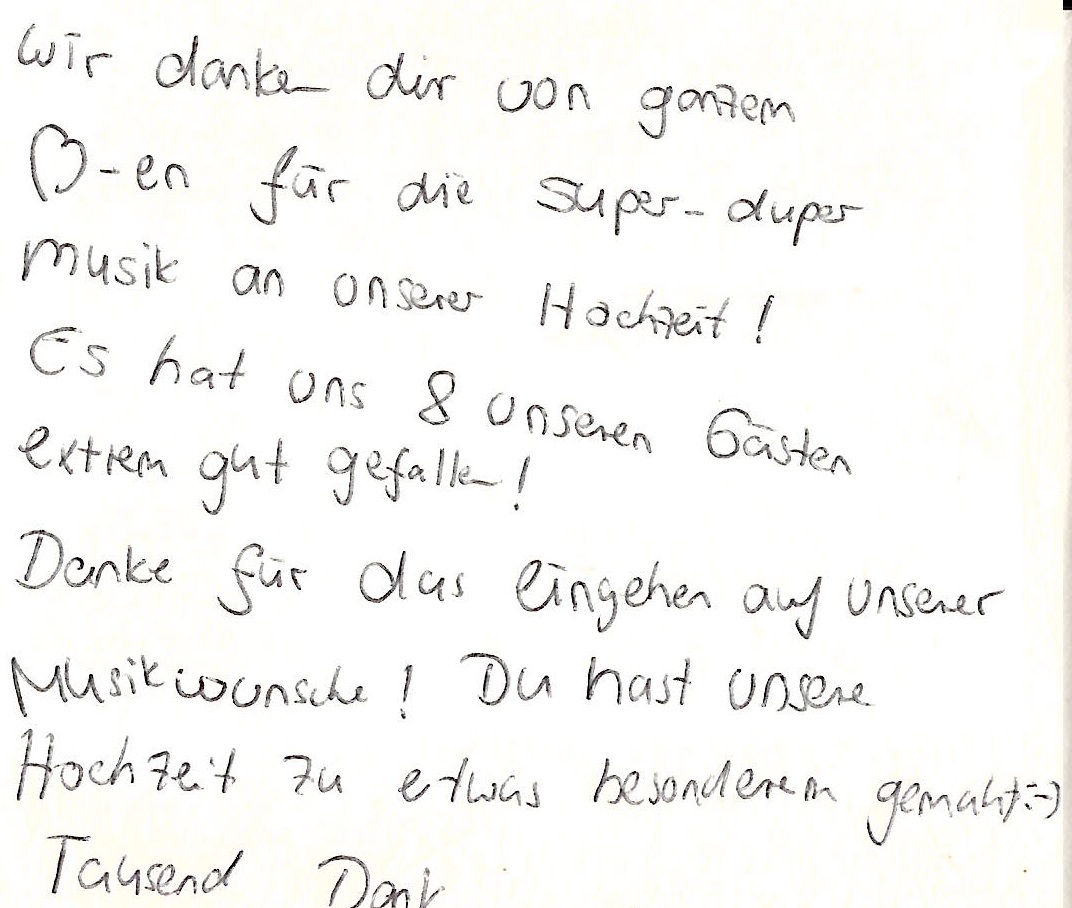 Wir danken dir von ganzem
♡-en für die super-duper
musik an unserer Hochzeit!
Es hat uns & unseren Gästen
extrem gut gefallen!
Danke für das eingehen auf unserer
Musikwünsche! Du hast unsere
Hochzeit zu etwas besonderem gemacht :-)
Tausend Dank